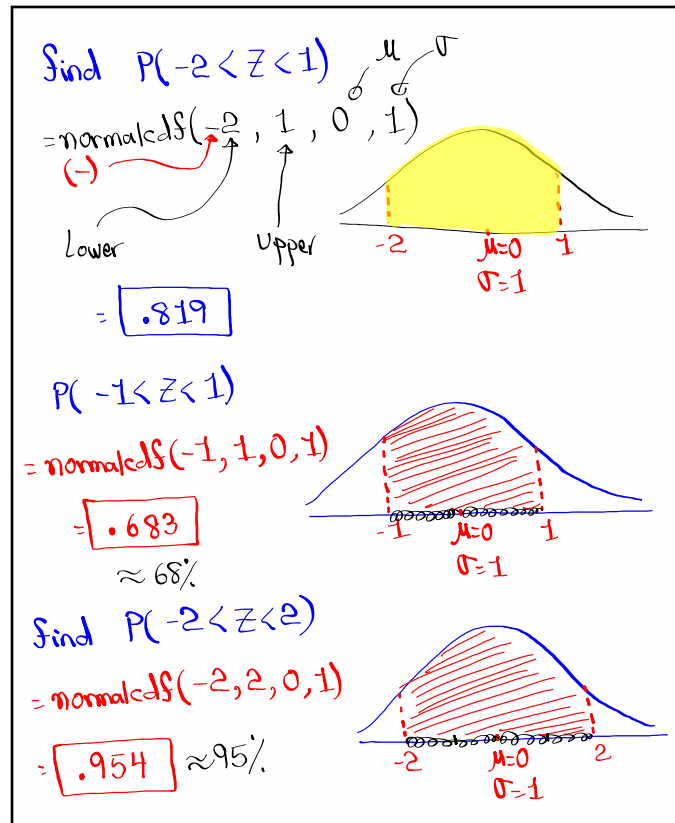 find P(-2 < Z < 1)
μ σ
= normalcdf(-2, 1, 0, 1)
(-)
Lower Upper
-2 μ=0 1
σ=1
= .819
P( -1 < Z < 1)
= normalcdf(-1, 1, 0, 1)
-1 μ=0 1
σ=1
= .683
≈ 68%
find P( -2 < Z < 2)
= normalcdf(-2, 2, 0, 1)
-2 μ=0 2
σ=1
= .954 ≈ 95%